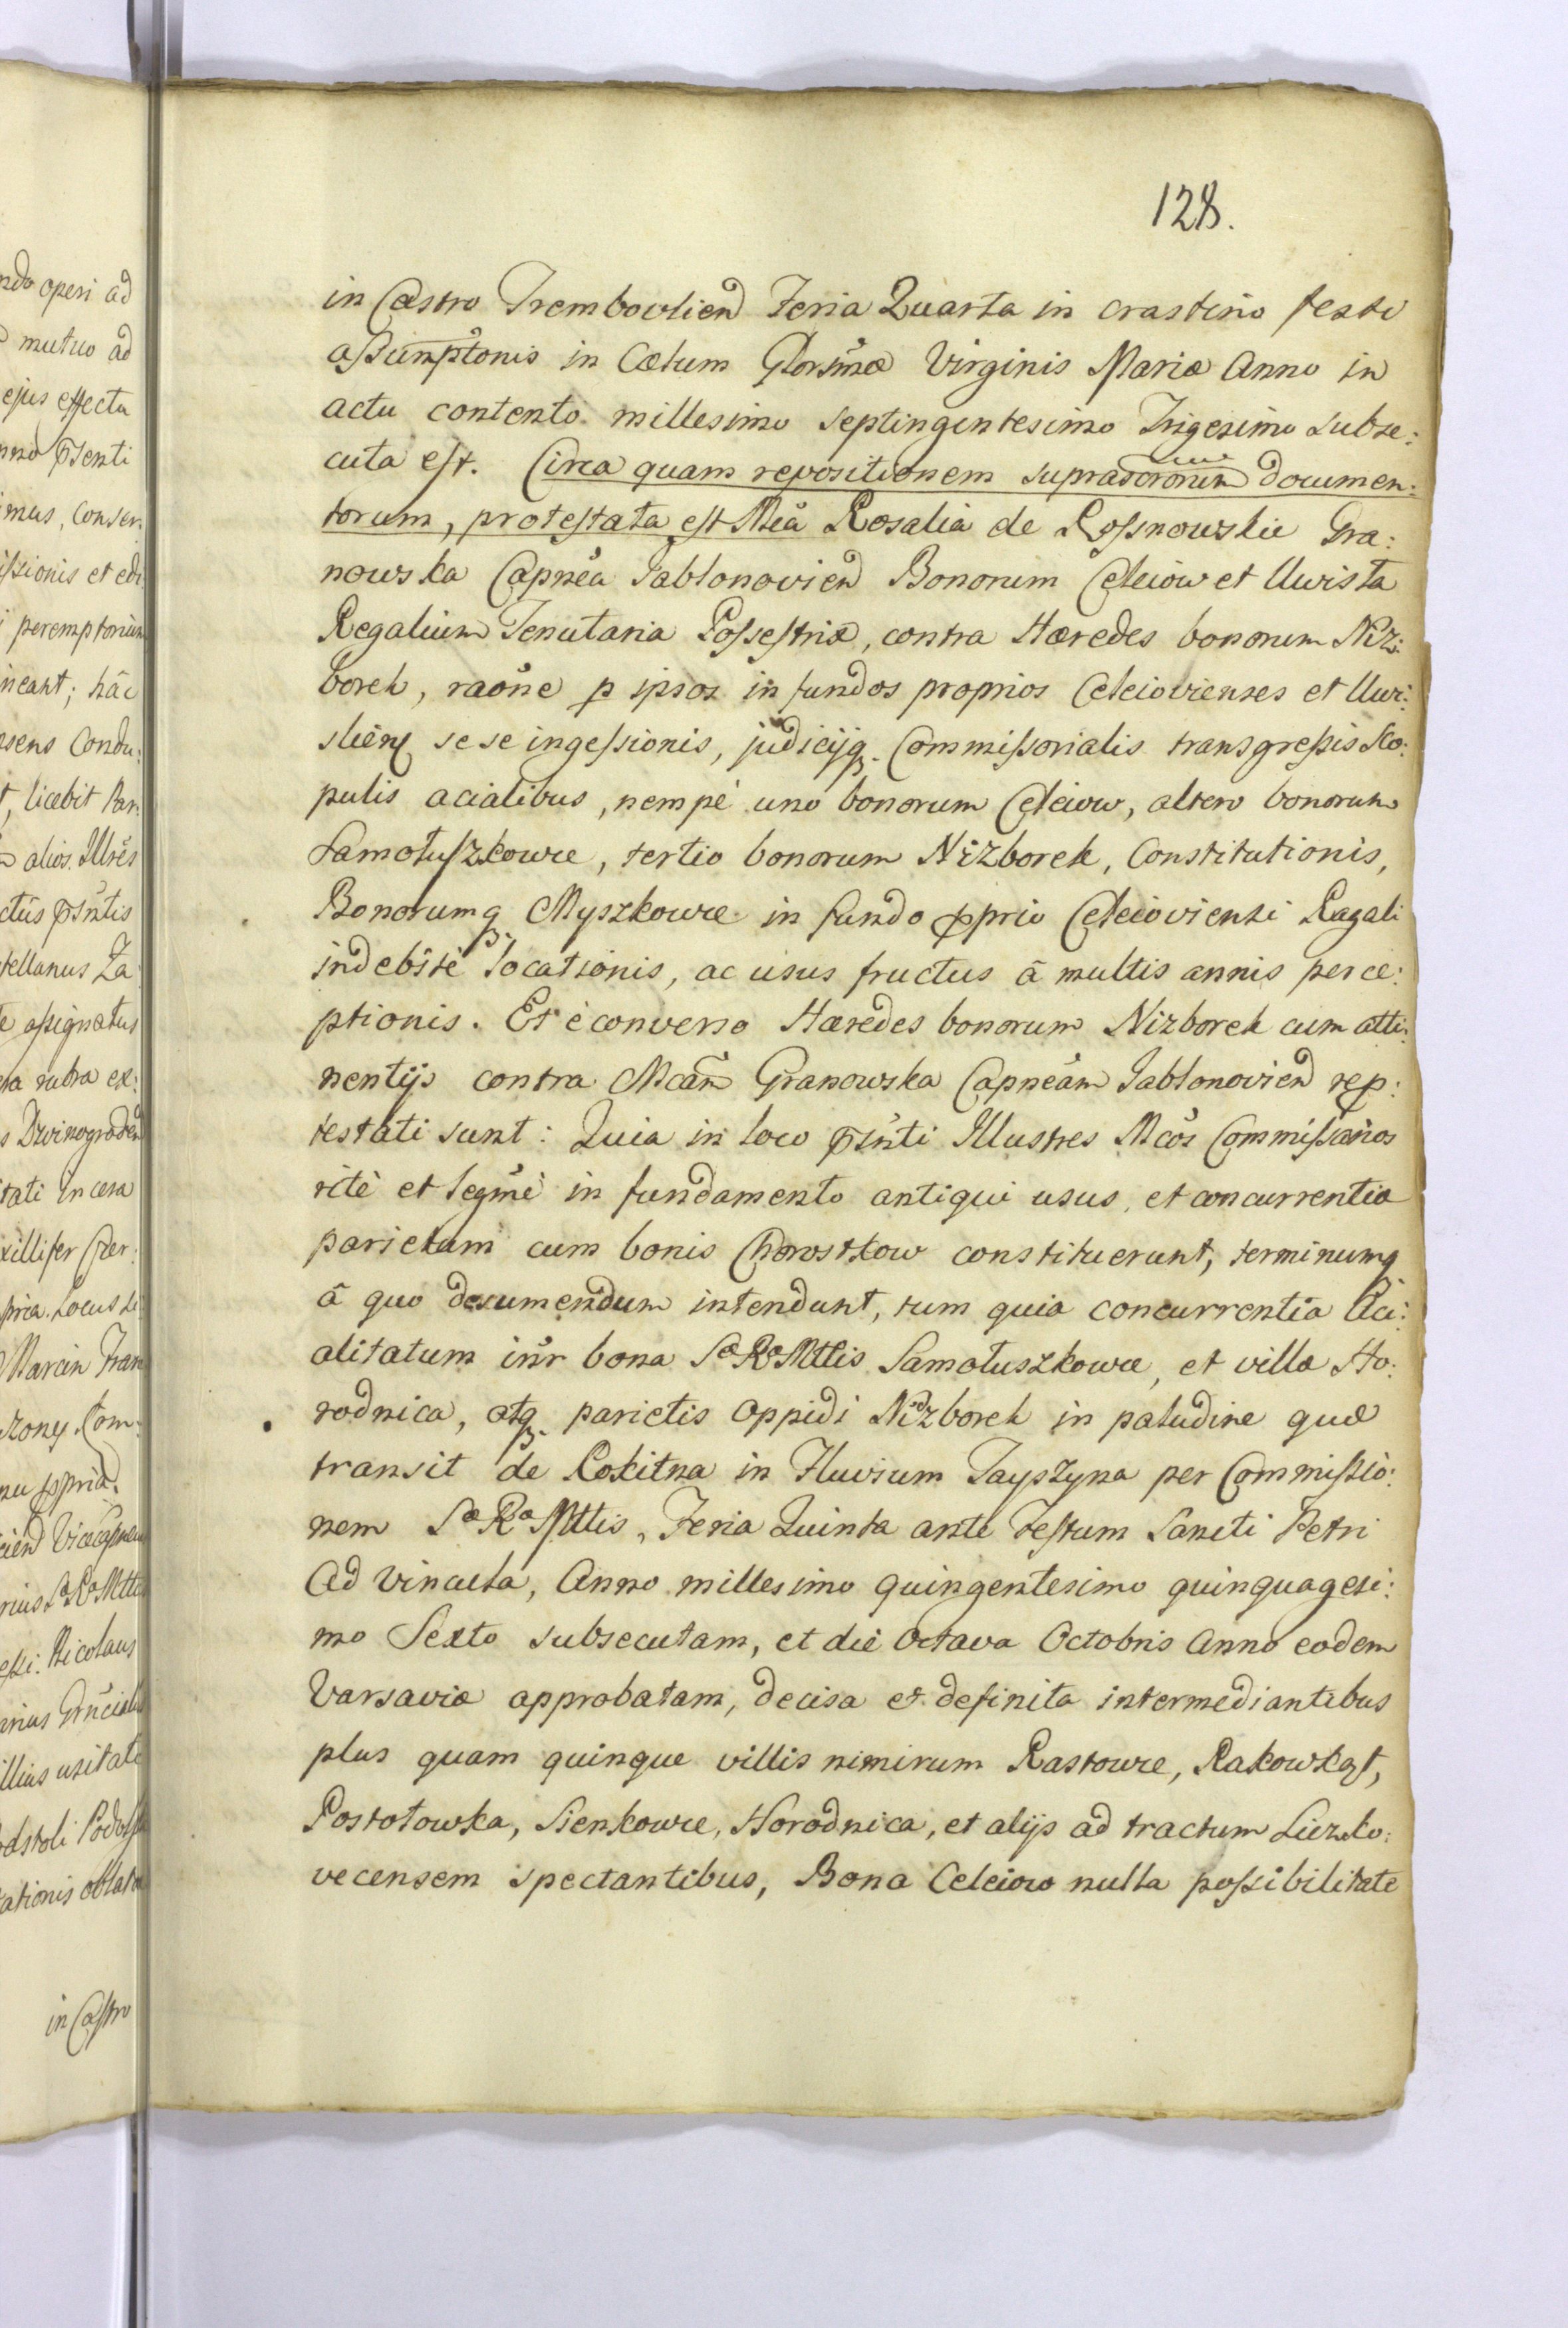 128.
in Castro Trembovlien Feria Quarta in crastino festi
assumptonis in Cælum Glorsmæ Virginis Mariæ Anno in
actu contento millesimo septingentesimo Trigesimo subse:
cuta est. Circa quam repositionem supradororum documen:
torum, protestata est Mca Rosalia de Rossnowskie Gra:
nowska Capnea Jablonovien Bonorum Celeiow et Uwisła
Regalium Tenutaria Possestrix, contra Hæredes bonorum Niż:
borek, raone p ipsos in fundos proprios Celeiovienses et Uwi:
slien sese ingessionis, judicijq. Commissorialis transgressis Sco:
pulis acialibus, nempè uno bonorum Celeiow, altero bonorum
Samołuszkowce, tertio bonorum Niżborek, Constitutionis,
Bonorumq. Myszkowce in fundo pprio Celeioviensi Regali
indebitè locationis, ac usus fructus â multis annis perce:
ptionis. Et è converso Hæredes bonorum Nizborek cum atti:
nentijs contra Mcam Granowska Capneam Jablonovien rep:
testati sunt: Quia in loco psnti Illustres Mcos Commissarios
ritè et legmè in fundamento antiqui usus, et concurrentia
parietum cum bonis Chorostkow constituerunt, terminumq
â quo desumendum intendunt, tum quia concurrentia Aci:
alitatum inr bona Sæ Ræ Mttis Samołuszkowce, et villæ Ho:
rodnica, atq. parietis oppidi Nidzborek in paludine quæ
transit de Rokitna in Fluvium Tayszyna per Commissio:
nem Sæ Ræ Mttis, Feria Quinta ante Festum Sancti Petri
Ad Vincula, Anno millesimo quingentesimo quinquagesi:
mo Sexto subsecutam, et die Octava Octobris Anno eodem
Varsaviæ approbatam, decisa et definita intermediantibus
plus quam quinque villis nimirum Rastowce, Rakowkąt,
Postołowka, Sienkowce, Horodnica, et alijs ad tractum
vecensem spectantibus, Bona Celeiow nulla possibilitate
ndo operi ad
mutuo ad
ejus effectu
psenti
mus, conser
issionis et edi
peremptorium
neant; hâc
sens Condu:
, licebit Par:
alios. Illres
psntis
tellanus Za
assignatus
ra rubra ex:
s Dzwinogroden
rati in cera
xillifer Czer:
pria. Locus Si
Marcin Fran
Com:
nu ppria.
Mttis
Nicolaus
llius usitate
ationis oblata
in Castro